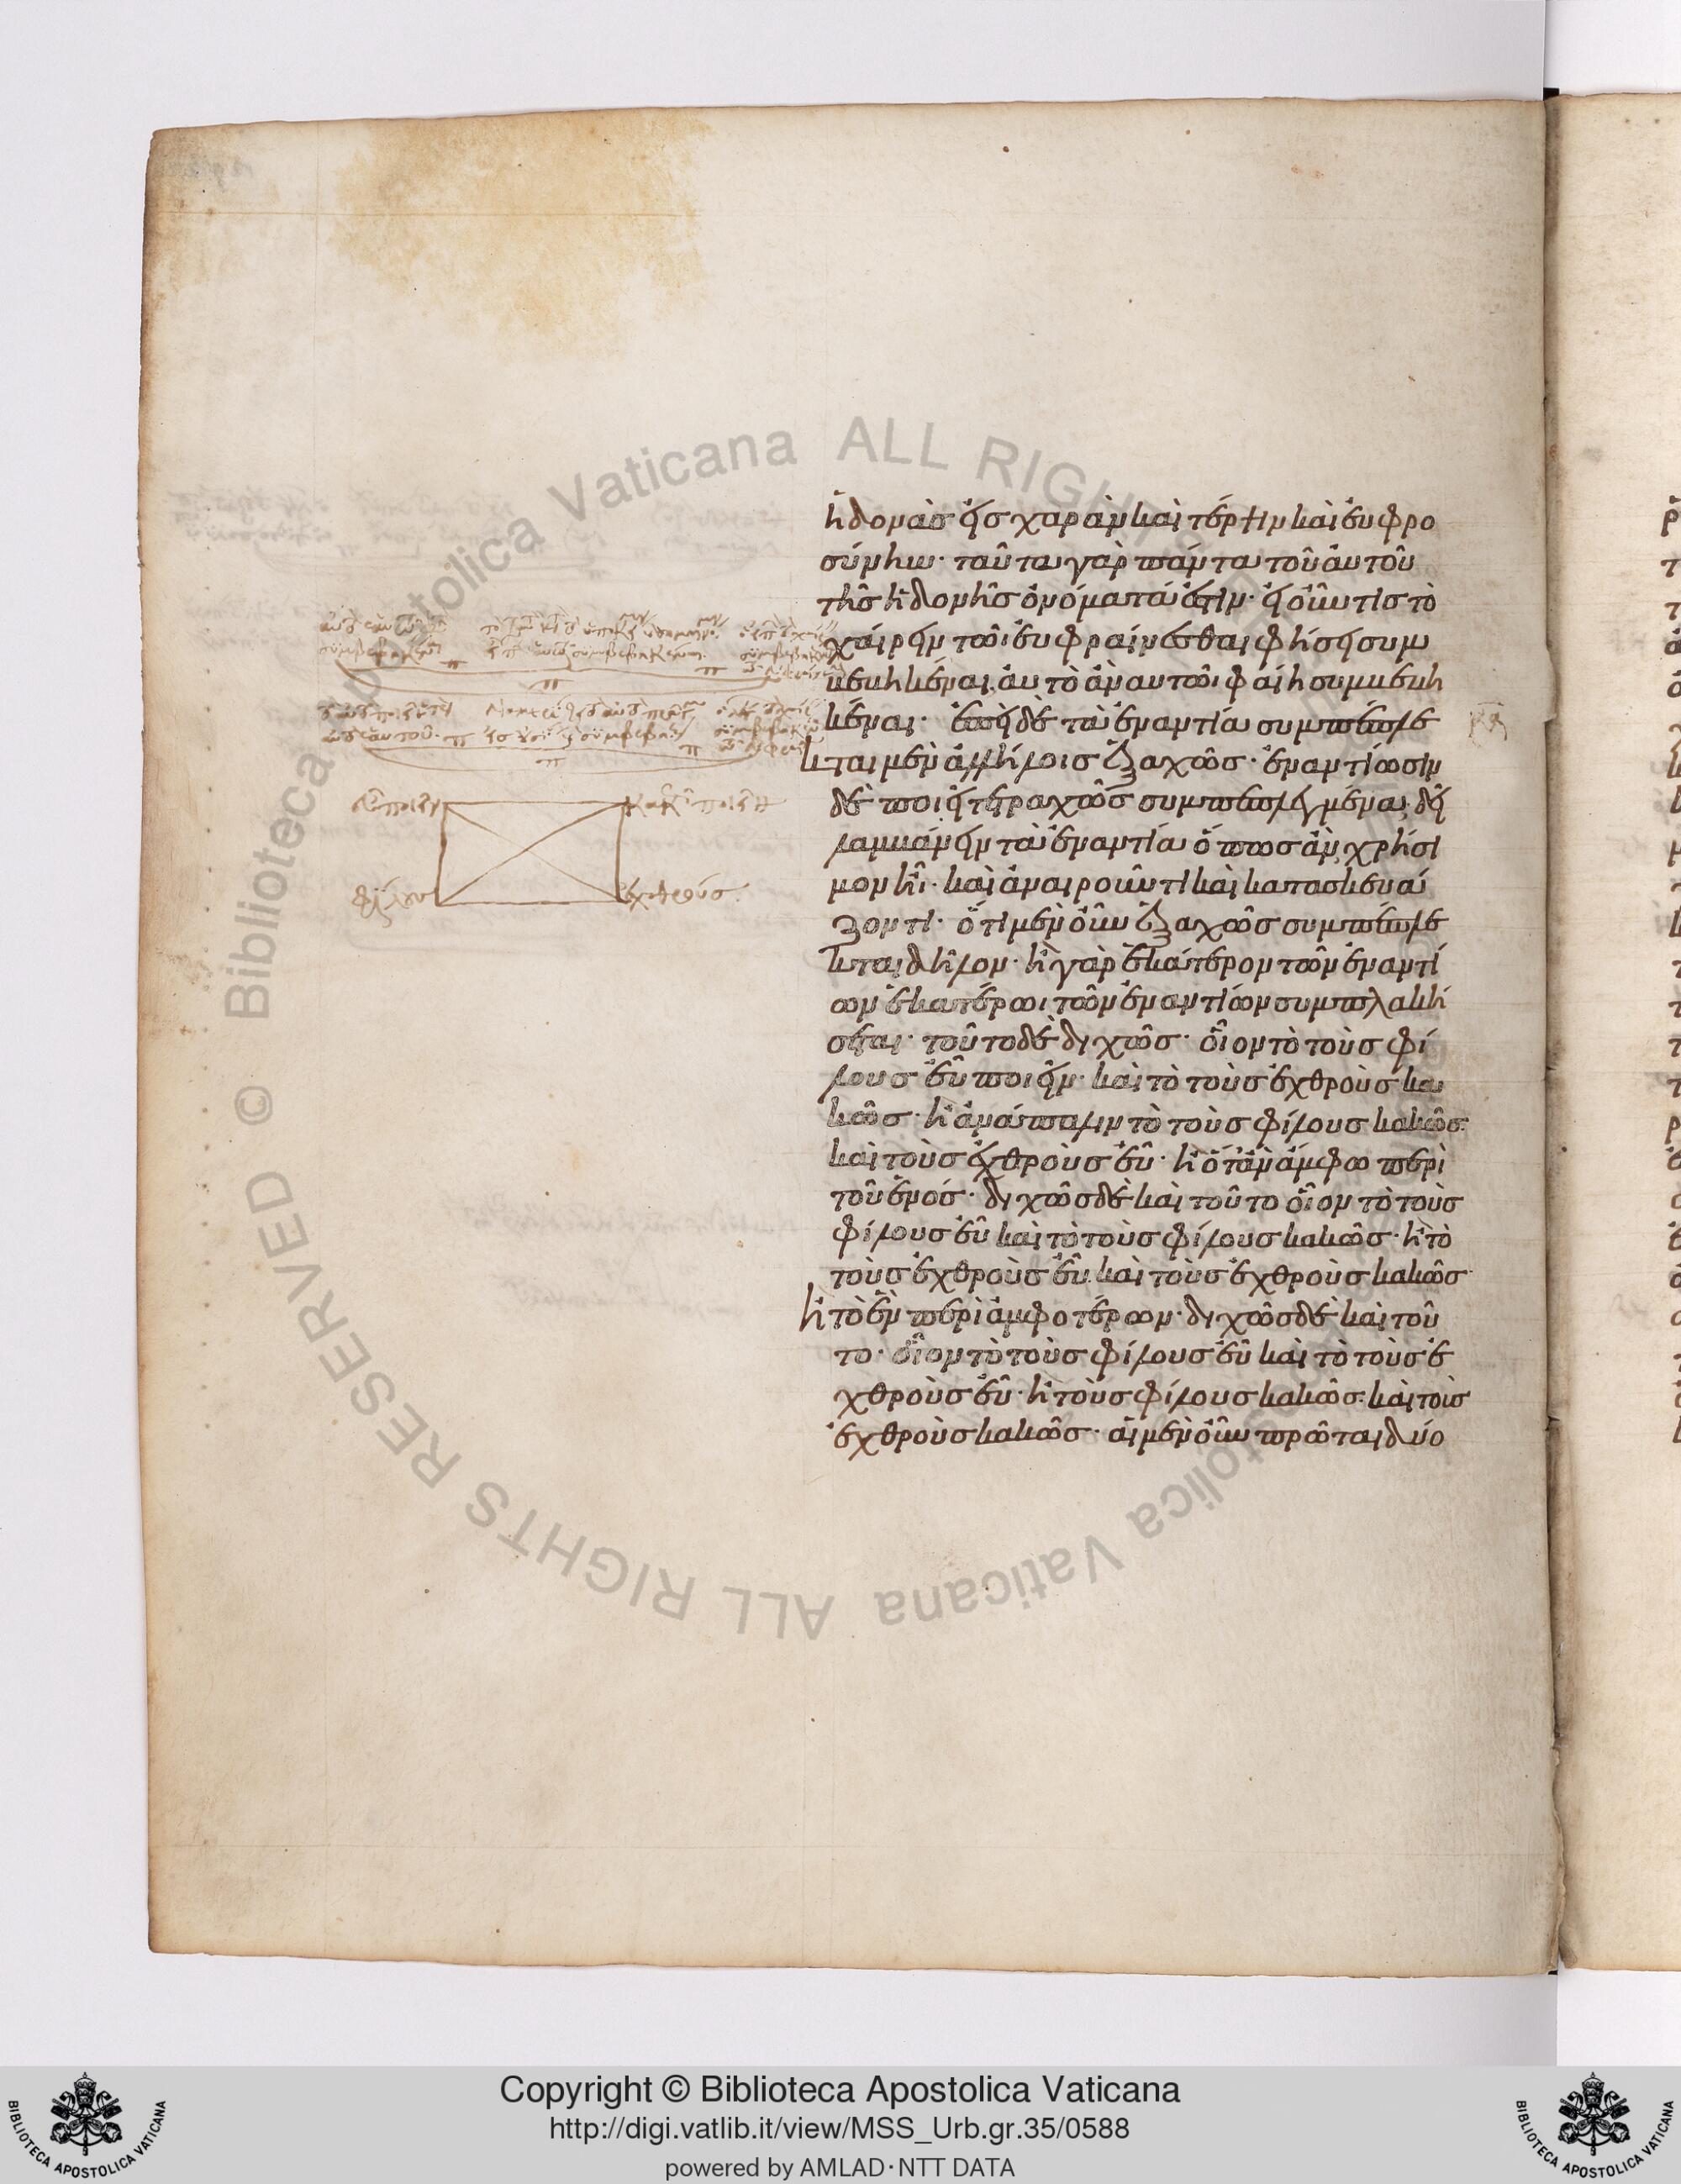 ἡδονὰς εἰς χαρὰν καὶ τέρψιν καὶ εὐφρο
σύνην· ταῦτα γὰρ πάντα τοῦ αὐτοῦ
τῆς ἡδονῆς ὀνόματά ἐστιν· εἰ οὖν τις τὸ
χαίρειν τῶι εὐφραίνεσθαι φήσει συμ
βεβηκέναι, αὐτὸ ἂν αὑτῶι φαίη συμβεβη
κέναι· ἐπεὶ δὲ τὰ ἐναντία συμπλέ
κεται μὲν ἀλλήλοις ἑξαχῶς· ἐναντίωσιν
δὲ ποιεῖ τετραχῶς συμπλεκόμενα, δεῖ
λαμβάνειν τὰ ἐναντία ὅπως ἂν χρήσι
μον ἦι· καὶ ἀναιροῦντι καὶ κατασκευά
ζοντι· ὅτι μὲν οὖν ἑξαχῶς συμπλέ
κεται δῆλον· ἢ γὰρ ἑκάτερον τῶν ἐναντί
ων ἑκατέρωι τῶν ἐναντίων συμπλακή
σεται· τοῦτο δὲ διχῶς· οἷον τὸ τοὺς φί
λους εὖ ποιεῖν· καὶ τὸ τοὺς ἐχθροὺς κα
κῶς· ἢ ἀνάπαλιν τὸ τοὺς φίλους κακῶς·
καὶ τοὺς ἐχθροὺς εὖ· ἢ ὅταν ἄμφω περὶ
τοῦ ἑνός· διχῶς δὲ καὶ τοῦτο οἷον τὸ τοὺς
φίλους εὖ καὶ τὸ τοὺς φίλους κακῶς· ἢ τὸ
τοὺς ἐχθροὺς εὖ καὶ τοὺς ἐχθροὺς κακῶς·
ἢ τὸ ἓν περὶ ἀμφοτέρων· διχῶς δὲ καὶ τοῦ
το· οἷον τὸ τοὺς φίλους εὖ καὶ τὸ τοὺς ἐ
χθροὺς εὖ· ἢ τοὺς φίλους κακῶς· καὶ τοὺς
ἐχθροὺς κακῶς· αἱ μὲν οὖν πρῶται δύο
εὖ ποιεῖν
φίλους
ἐχθρούς
Copyright © Biblioteca Apostolica Vaticana
http://digi.vatlib.it/view/MSS_Urb.gr.35/0588
powered by AMLAD·NTT DATA
BIBLIOTECA APOSTOLICA VATICANA
BIBLIOTECA APOSTOLICA VATICANA
© Biblioteca Apostolica Vaticana ALL RIGHTS RESERVED